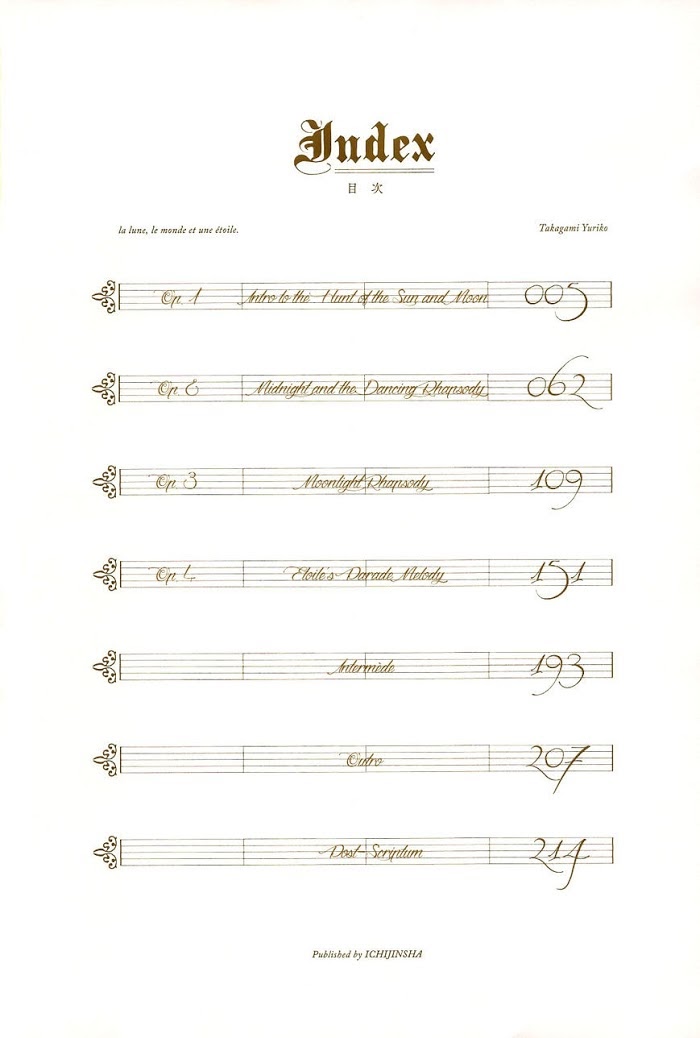 Index
目次
la lune, le monde et une étoile.
Takagami Yuriko
Op. 1 Intro to the Hunt of the Sun and Moon 005
Op. 2 Midnight and the Dancing Rhapsody 062
Op. 3 Moonlight Rhapsody 109
Op. 4 Etoile's Parade Melody 151
Intermède 193
Outro 207
Post-Scriptum 214
Published by ICHIJINSHA